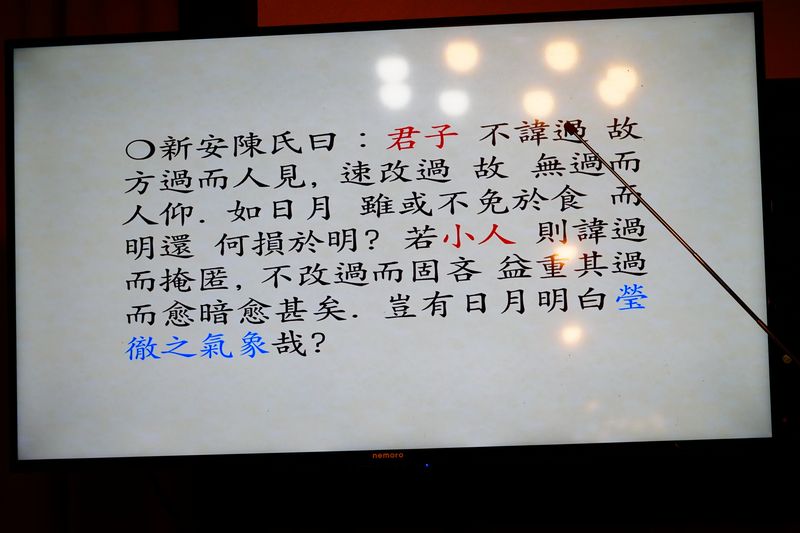 ○新安陳氏曰 : 君子 不諱過 故
方過而人見, 速改過 故 無過而
人仰. 如日月 雖或不免於食 而
明還 何損於明? 若小人 則諱過
而掩匿, 不改過而固吝 益重其過
而愈暗愈甚矣. 豈有日月明白瑩
徹之氣象哉?
nemoro